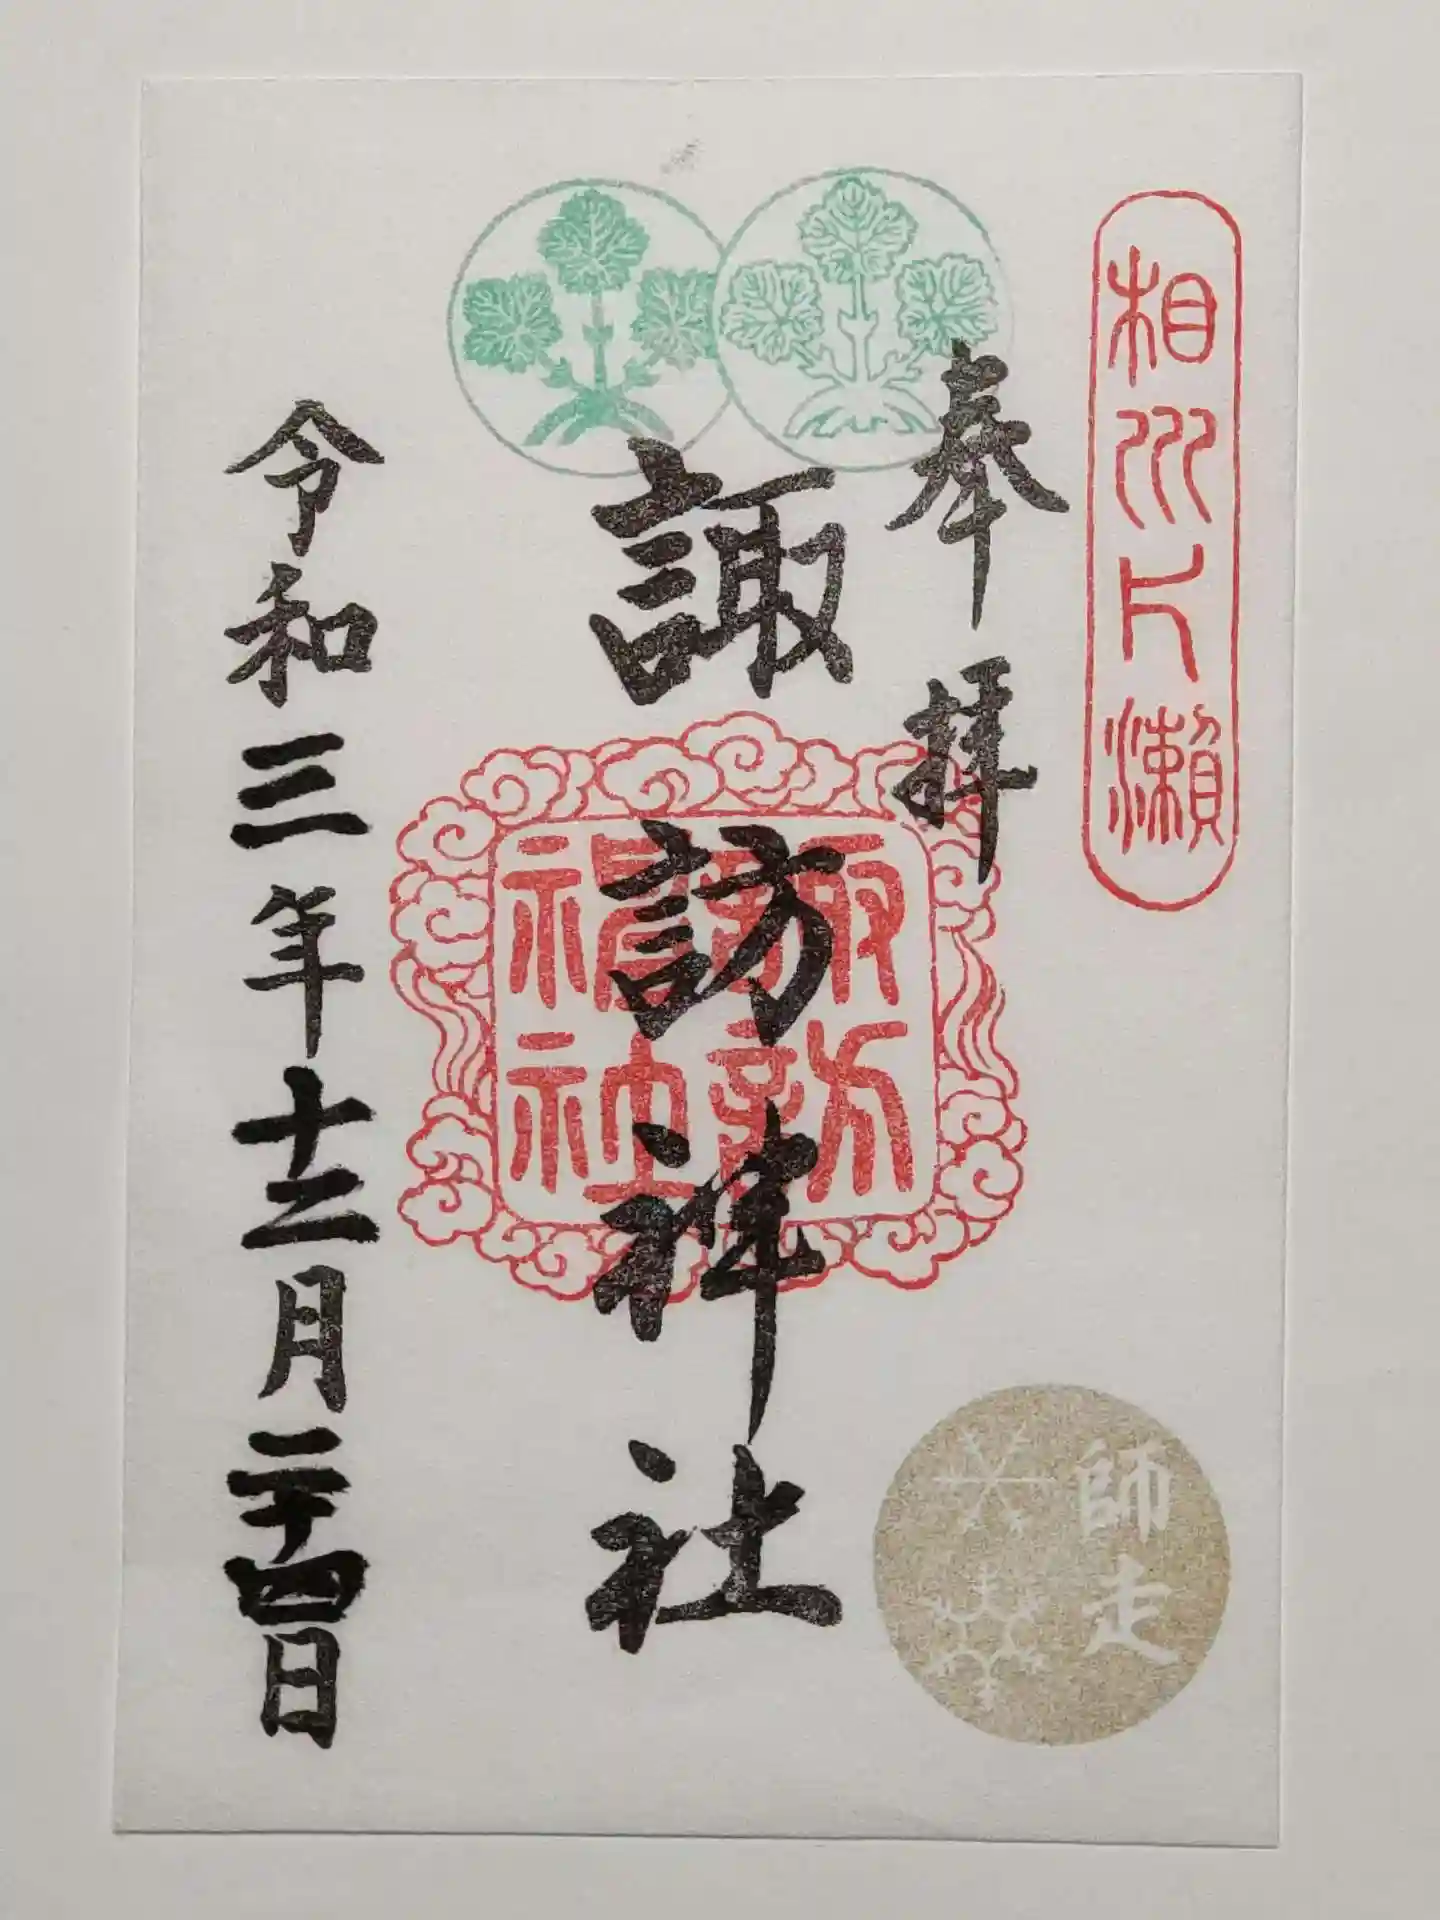 相州片瀬
奉拝
諏訪神社
諏訪
神社
師走
令和三年十二月二十四日